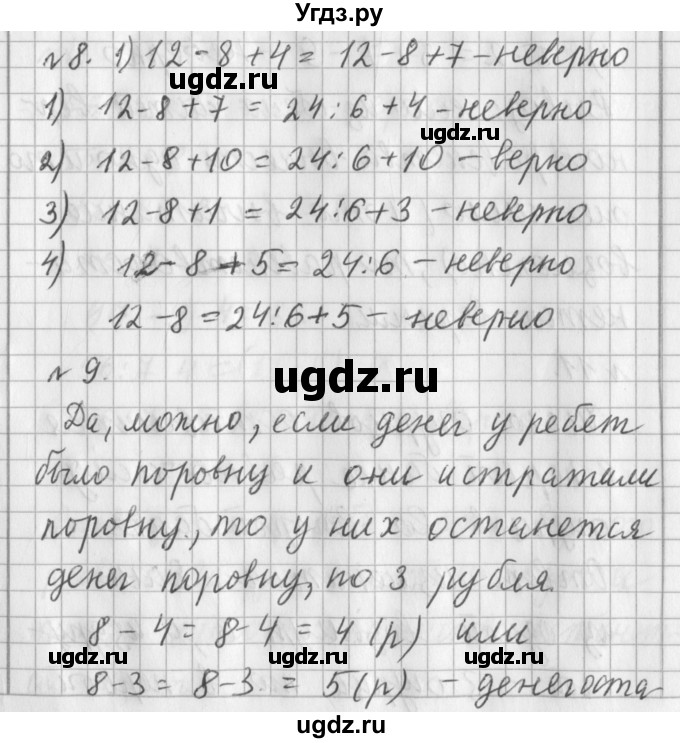 Угдз.ру
№ 8. 1) 12 - 8 + 4 = 12 - 8 + 7 - неверно
ugdz.ru
1) 12 - 8 + 7 = 24 : 6 + 4 - неверно
ugdz.ru
2) 12 - 8 + 10 = 24 : 6 + 10 - верно
3) 12 - 8 + 1 = 24 : 6 + 3 - неверно
4) 12 - 8 + 5 = 24 : 6 - неверно
12 - 8 = 24 : 6 + 5 - неверно
№ 9.
ugdz.ru
Да, можно, если денег у ребят
было поровну и они истратили
поровну, то у них останется
денег поровну, по 3 рубля.
8 - 4 = 8 - 4 = 4 (р) или
ugdz.ru ugdz.ru
8 - 3 = 8 - 3 = 5 (р) - денег оста
ugdz.ru